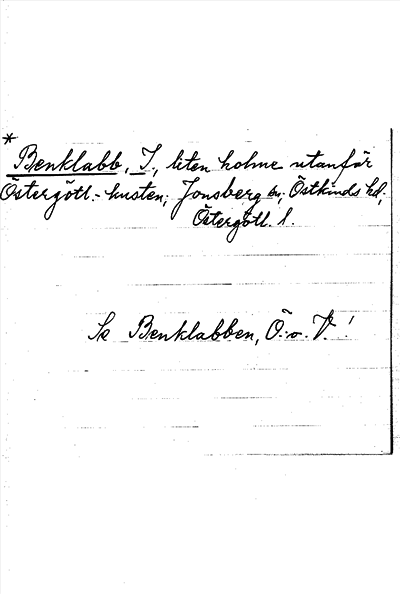 *
Benklabb, I., liten holme utanför
Östergötl.-kusten; Jonsberg sn; Östkinds hd,
Östergötl. l.
Se Benklabben, Ö. o. V.!